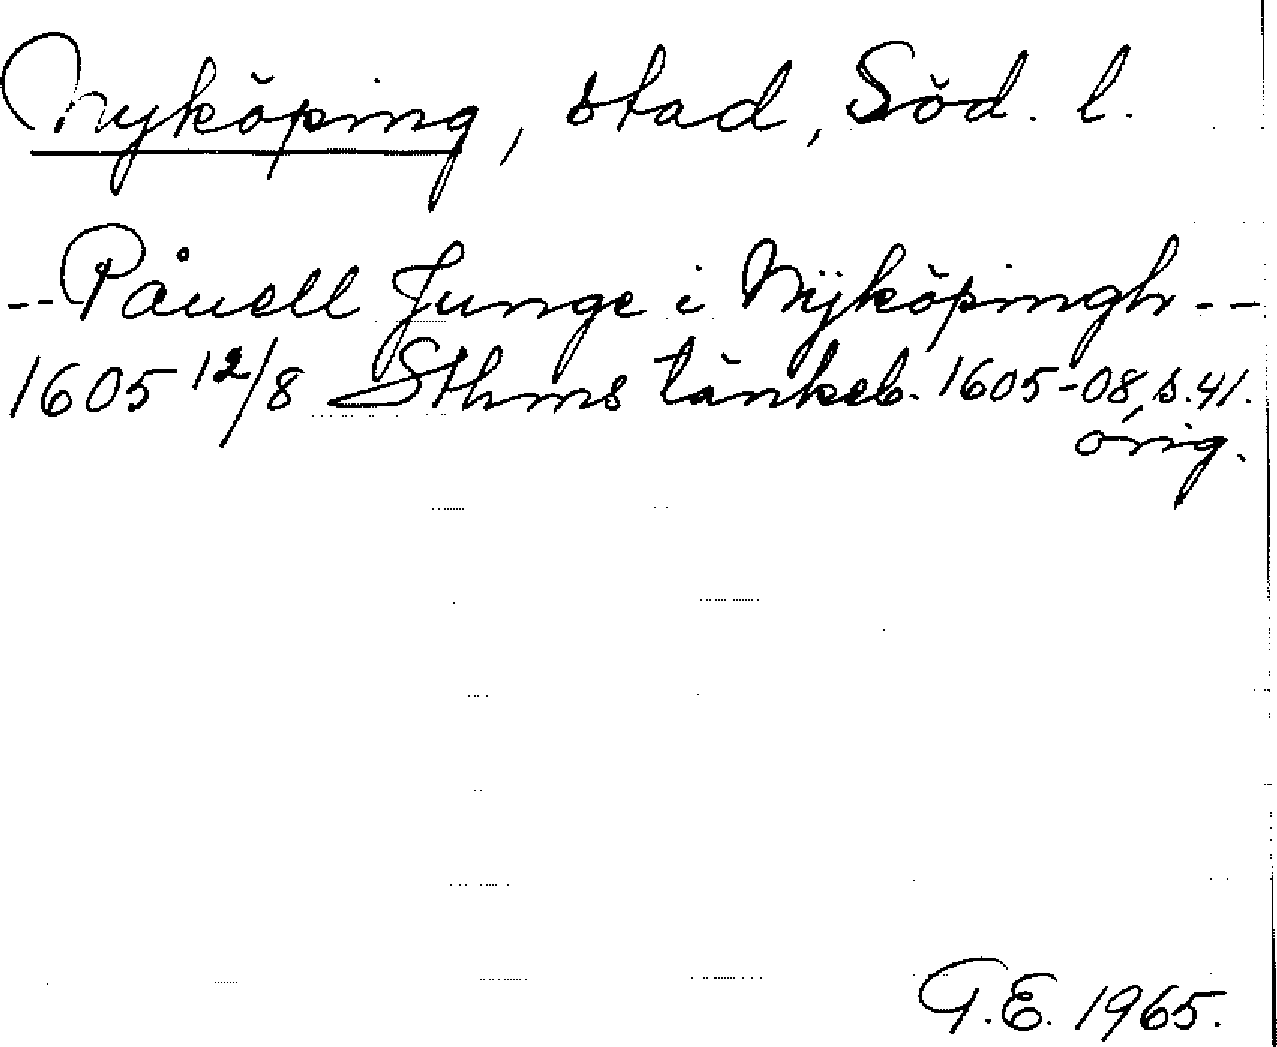 Nyköping, stad, Söd. l.
--Påuell Junge i Nÿköpingh--
1605 12/8 Sthms tänkeb. 1605-08, s. 41.
orig.
G.E. 1965.